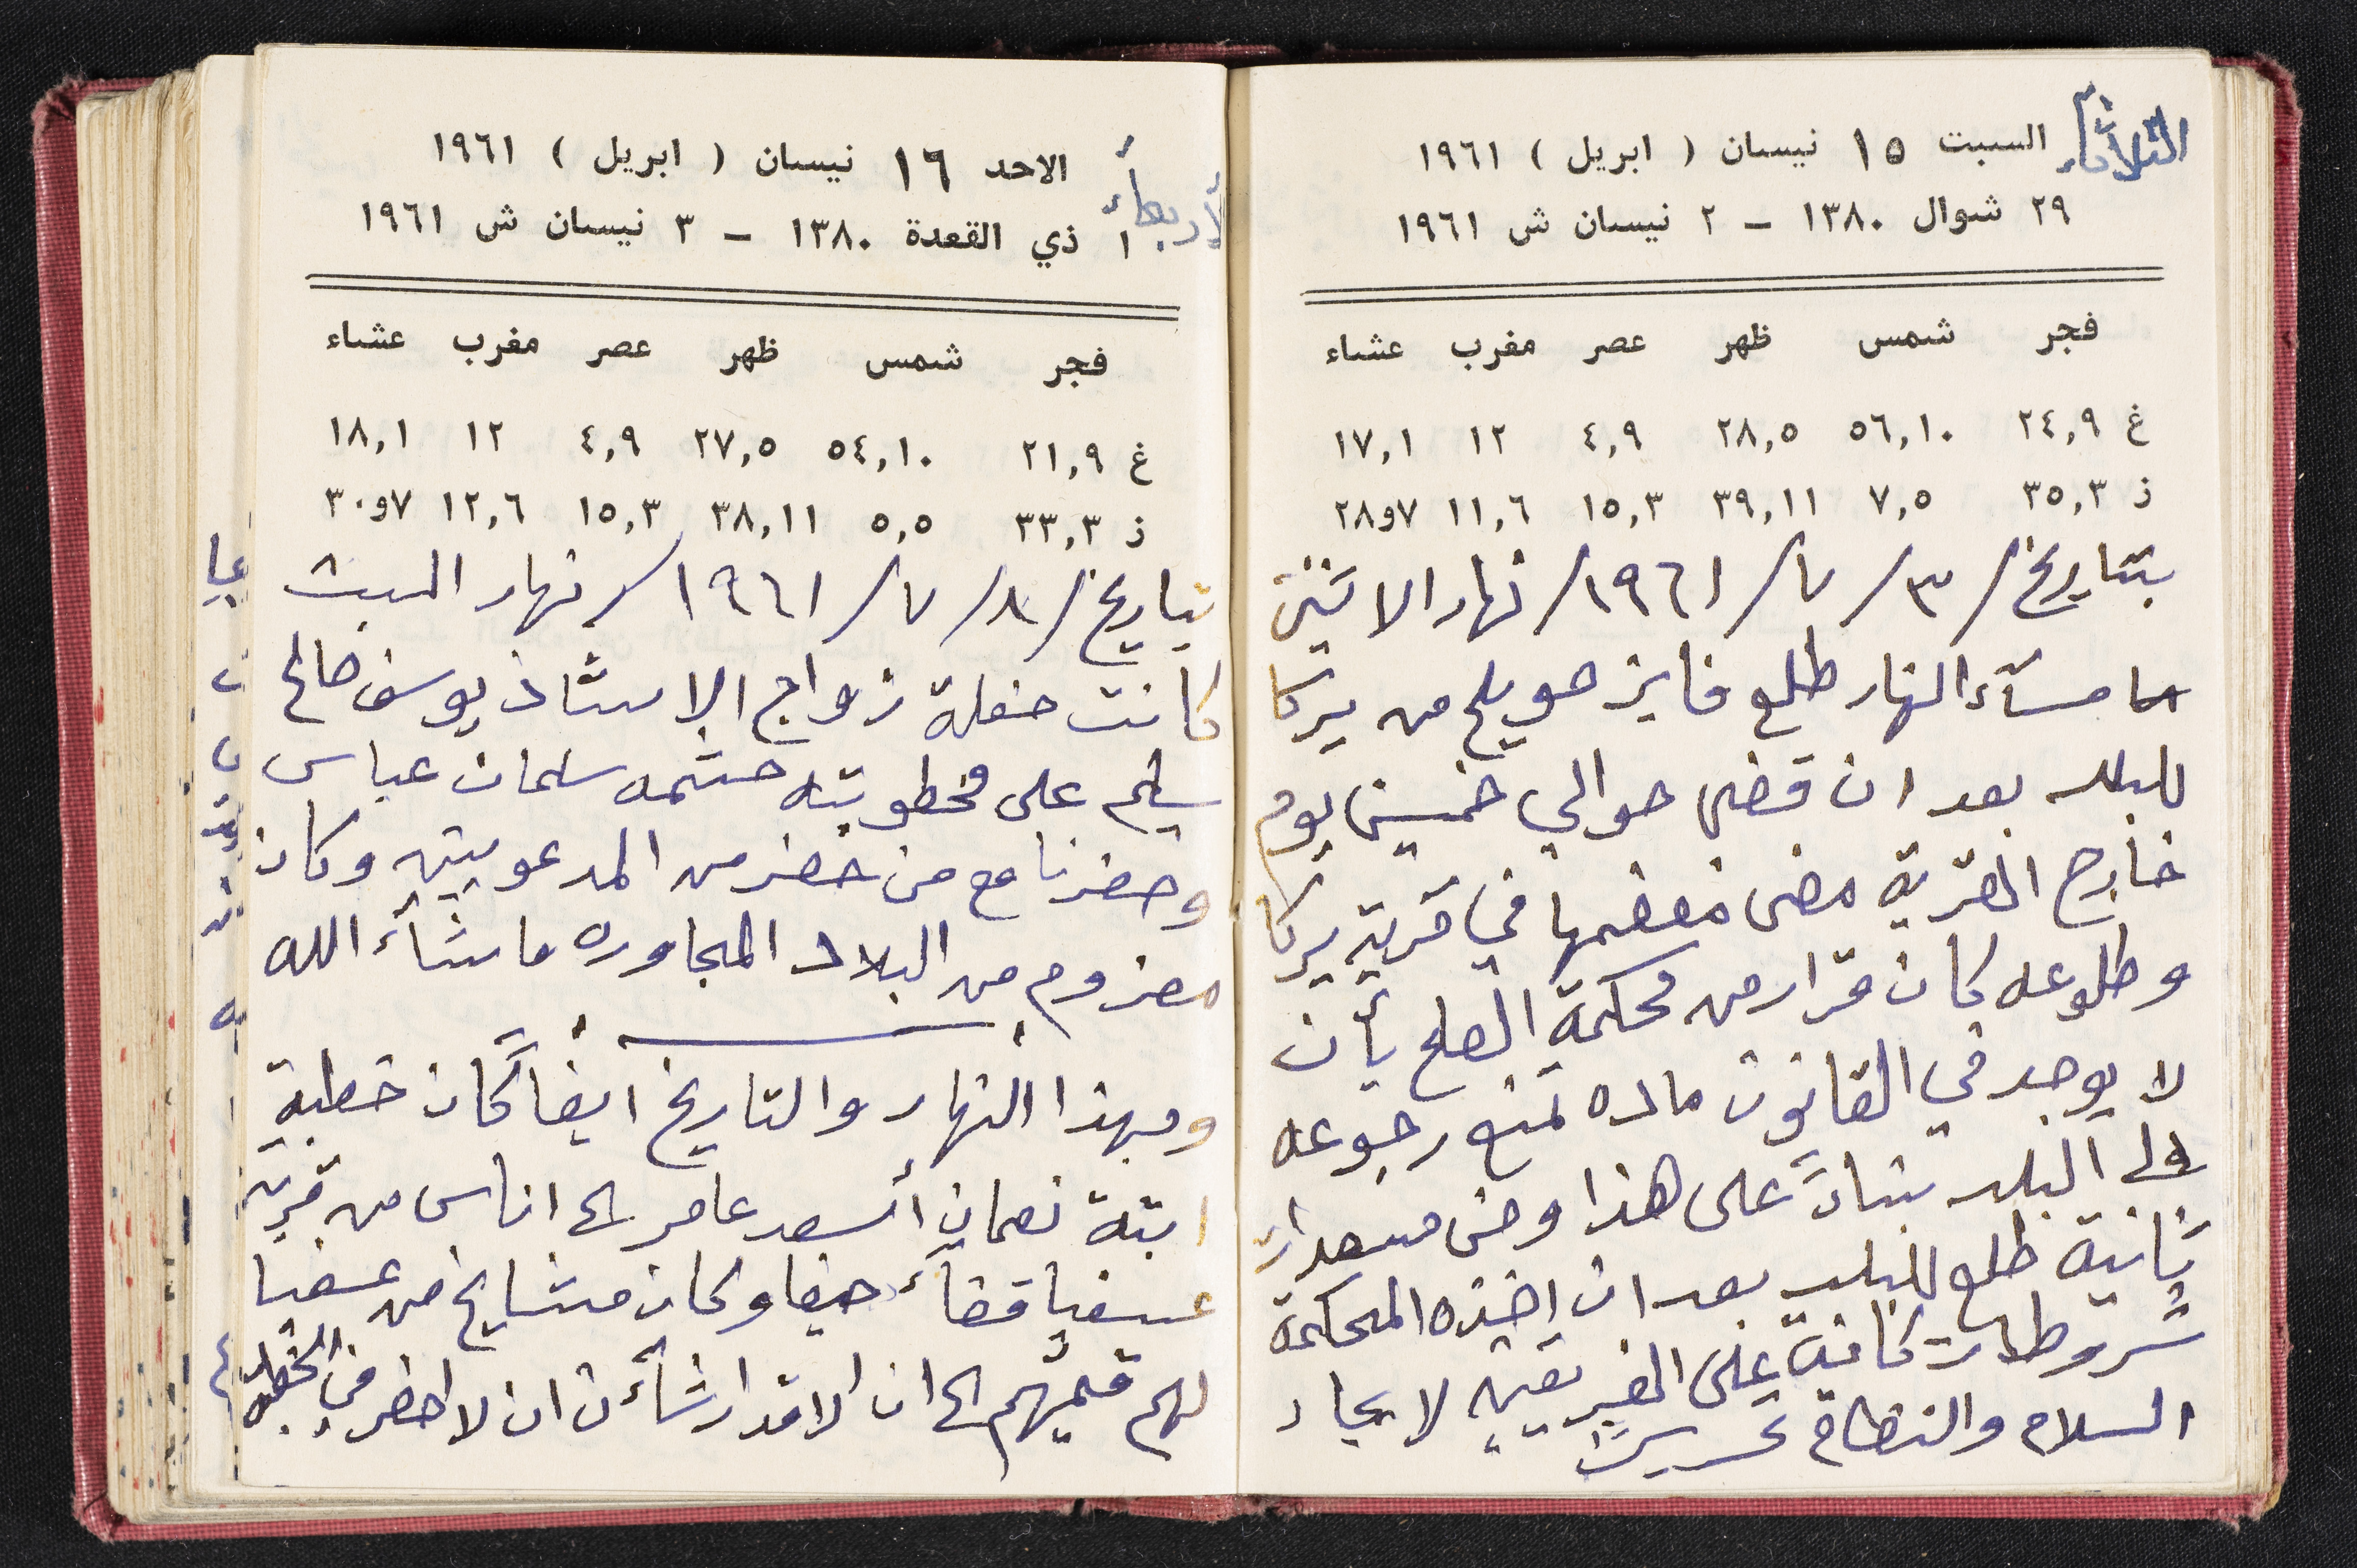 الثلاثاء
السبت ١٥ نيسان ( ابريل ) ١٩٦١
٢٩ شوال ١٣٨٠ – ٢ نيسان ش ١٩٦١
فجر شمس ظهر عصر مغرب عشاء
غ ٢٤,٩ ٥٦,١٠ ٢٨,٥ ٤,٩ ١٢ ١٧,١
ز ٣٥,٣ ٧,٥ ٣٩,١١ ١٥,٣ ١١,٦ ٧و٢٨
بتاريخ /٣ /٧ /١٩٦١/ نهار الاثنين
مسآء النهار طلع فايز حويلح من يركا
للبلد بعد ان قضى حوالي خمسين يوم
خارج القرية مضى معضمها في قرية يركا
وطلوعه كان قرار من محكمة الصلح بأن
لا يوجد في القانون ماده تمنع رجوعه
الى البلد بناءً على هذا ومن
ثانية طلع للبلد بعد ان اخذه المحكمة
شروطات كافية على الفريقين لايجاد
السلام والنظام
الأربعاء
الاحد ١٦ نيسان ( ابريل ) ١٩٦١
١ ذي القعدة ١٣٨٠ – ٣ نيسان ش ١٩٦١
فجر شمس ظهر عصر مغرب عشاء
غ ٢١,٩ ٥٤,١٠ ٢٧,٥ ٤,٩ ١٢ ١٨,١
ز ٣٣,٣ ٥,٥ ٣٨,١١ ١٥,٣ ١٢,٦ ٧و٣٠
بتاريخ /٨ /٧ /١٩٦١/ نهار السبت
كانت حفلة زواج الاستاذ يوسف صالح
سليم على مخطوبته حشمه سلمان عباس
وحضرنا مع من حضر من المدعويين وكان
معزوم من البلاد المجاوره ما شآء الله
وبهذا النهار والتاريخ ايضاً كان خطبة
ابنة نعمان أسعد عامر الى اناس من قرية
عسفيا قضآء حيفا وكان مشايخ من عسفيا
لهم قميّهم الى ان الاقدار شآءت ان لا احضر في الخطبة